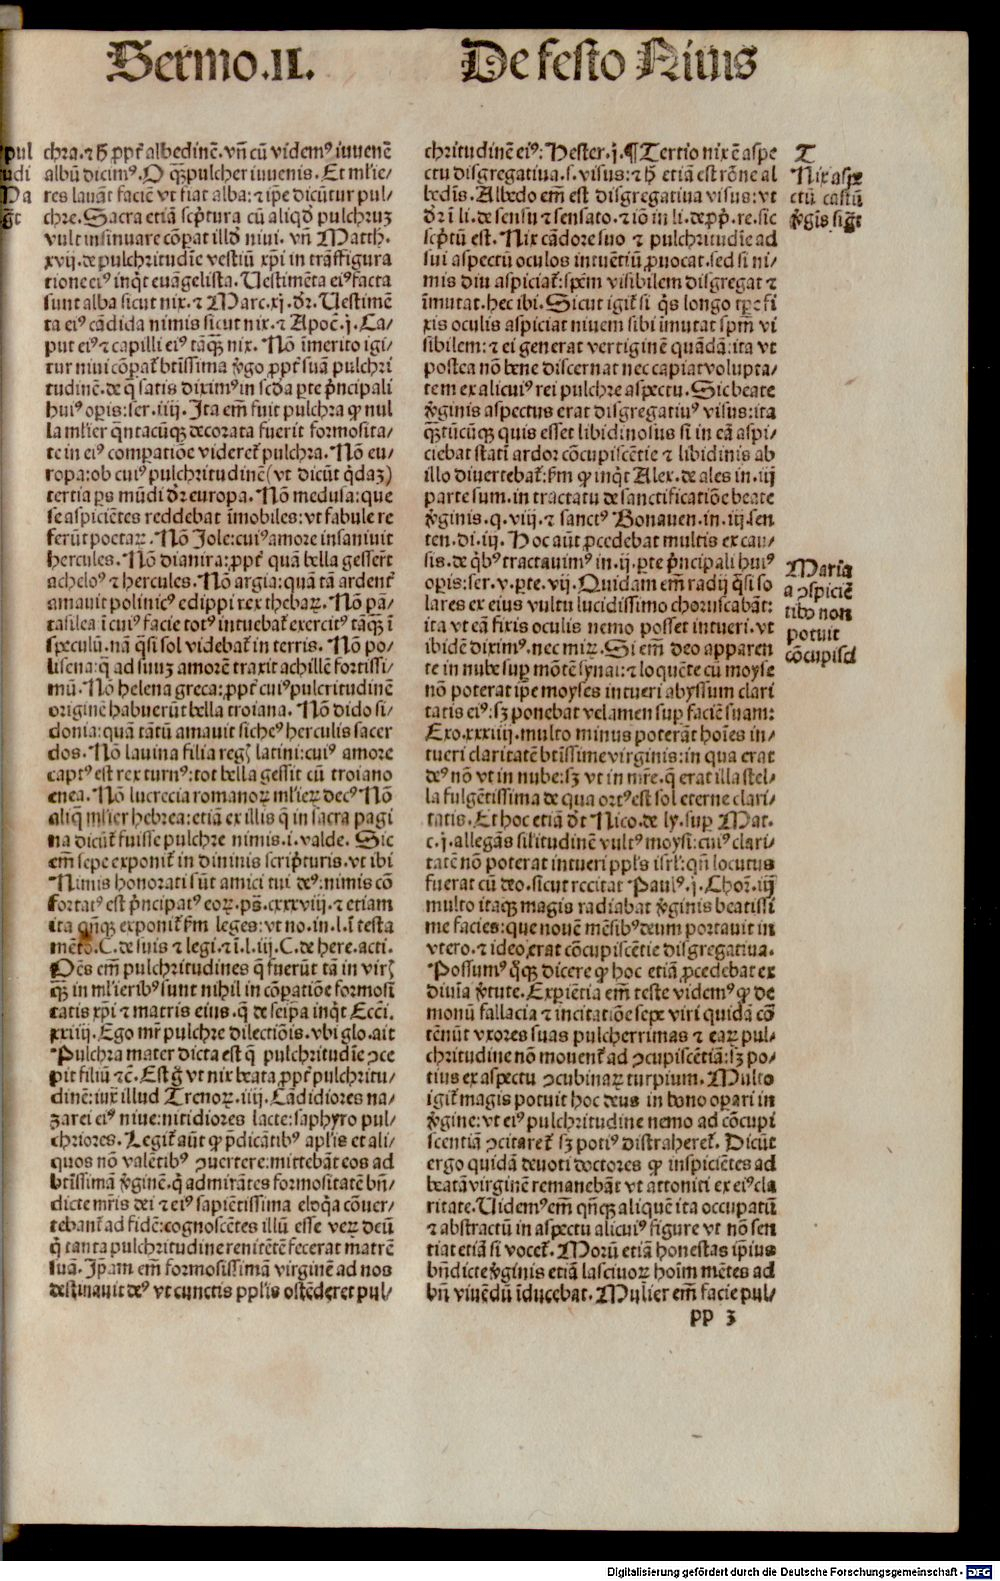 Sermo .II. De festo Niuis
pul
udi
Ma
gͥt
chra. ⁊ hͦ ꝓpt̄ albedinē. vn̄ cū videmꝰ iuuenē
albū dicimꝰ. O qͣꝫ pulcher iuuenis. Et ml̓ie-
res lauāt faciē vt fiat alba: ⁊ ip̄e dicūtur pul-
chre. Sacra etiā scp̄tura cū aliqͦd pulchruꝫ
vult insinuare cōpat illd̓ niui. vn̄ Matth.
xvij. de pulchritudīe vestiū xp̄i in trāsfigura
tione eiꝰ inqͥt euāgelista. Uestimēta eiꝰ facta
sunt alba sicut nix. ⁊ Marc. xj. dr̄. Uestimē
ta eiꝰ cādida nimis sicut nix. ⁊ Apoc̄. j. Ca-
put eiꝰ ⁊ capilli eiꝰ tāqͣꝫ nix. Nō īmerito igi-
tur niui cōpat̄ btīssima v̓go ꝓpt̄ suā pulchri
tudinē. de qͣ satis diximꝰ in scd̓a ꝑte pͥncipali
huiꝰ oꝑis: ser. iiij. Ita em̄ fuit pulchra ꝙ nul
la ml̓ier qͣntacūqꝫ decorata fuerit formosita-
te in eiꝰ comparatiōe videret̄ pulchra. Nō eu-
ropa: ob cuiꝰ pulchritudinē (vt dicūt qͥdaꝫ)
tertia ꝑs mūdi dr̄ europa. Nō medusa: que
se aspiciētes reddebat īmobiles: vt fabule re
ferūt poetaꝝ. Nō Iole: cuiꝰ amore insaniuit
hercules. Nō dianira: ꝓpt̄ quā bella gesser̄t
achelous ⁊ hercules. Nō argia: quā tā ardent̄
amauit polinicꝰ edippi rex thebaꝝ. Nō pā-
tasilea ī cuiꝰ facie totꝰ intuebat̄ exercitꝰ tāqͣꝫ ī
speculū. nā qͣsi sol videbat̄ in terris. Nō po-
lisena: q̄ ad suuꝫ amorē traxit achillē fortissi-
mū. Nō helena greca: ꝓpt̄ cuiꝰ pulcritudinē
originē habuerūt bella troiana. Nō dido si-
donia: quā tātū amauit sicheꝰ herculis sacer
dos. Nō lauina filia regꝭ latini: cuiꝰ amore
captꝰ est rex turnꝰ: tot bella gessit cū troiano
enea. Nō lucrecia romanoꝝ ml̓ieꝝ decꝰ. Nō
aliqͣ ml̓ier hebrea: etiā ex illis q̄ in sacra pagi
na dicūt̄ fuisse pulchre nimis. i. valde. Sic
em̄ sepe exponit̄ in diuinis scripturis. vt ibi
Nimis honorati sūt amici tui deꝰ: nimis cō
fortatꝰ est pͥncipatꝰ eoꝝ. ps̄. cxxxviij. ⁊ etiam
ita qn̄qꝫ exponit̄ ẜm leges: vt no. in. l. ī testa
mēto. C. de suis ⁊ legi. ⁊ ī. l. iij. C. de here. acti.
Oēs em̄ pulchritudines q̄ fuerūt tā in virꝭ
qͣꝫ in ml̓ieribꝰ sunt nihil in cōparatiōe formosi
tatis xp̄i ⁊ matris eius. q̄ de seip̄a inqͥt. Ecci̓.
xxiiij. Ego mr̄ pulchre dilectiōis. vbi glo. ait
Pulchra mater dicta est q̄ pulchritudīe ꝯce
pit filiū ⁊c̄. Est g̊ vt nix beata ꝓpt̄ pulchritu-
dinē: iux̄ illud Trenoꝝ. iiij. Cādidiores na-
zarei eiꝰ niue: nitidiores lacte: saphyro pul-
chriores. Legit̄ aūt ꝙ p̄dicātibꝰ apl̓is et ali-
quos nō valētibꝰ ꝯuertere: mittebāt eos ad
btīssimā v̓ginē. qͥ admirātes formositatē bn̄-
dicte mr̄is dei ⁊ eiꝰ sapiētissima eloqͥa cōuer-
tebant̄ ad fidē: cognoscētes illū esse veꝝ deū
qͥ tanta pulchritudine renitētē fecerat matrē
suā. Ip̄am em̄ formosissimā virginē ad nos
destinauit deꝰ vt cunctis pplis ostēderet pul-
chritudinē eiꝰ: Hester. j. ¶ Tertio nix ē aspe
ctu disgregatiua. s. visus: ⁊ hͦ etiā est rōne al
bedīs. Albedo em̄ est disgregatiua visus: vt
dr̄ ī li. de sensu ⁊ sensato. ⁊ iō in li. de ꝓp̄. re. sic
scp̄tū est. Nix cādore suo ⁊ pulchritudīe ad
sui aspectū oculos intuētiū ꝓuocat. sed si ni-
mis diu aspiciat̄: spm̄ visibilem disgregat ⁊
īmutat. hec ibi. Sicut igit̄ si qͥs longo tꝑe fi
xis oculis aspiciat niuem sibi īmutat spm̄ vi
sibilem: ⁊ ei generat vertiginē quādā: ita vt
postea nō bene discernat nec capiat volupta-
tem ex alicuiꝰ rei pulchre aspectu. Sic beate
v̓ginis aspectus erat disgregatiuꝰ visus: ita
qͣꝫtūcūqꝫ quis esset libidinosus si in eā aspi-
ciebat statī ardor cōcupiscētie ⁊ libidinis ab
illo diuertebat̄: ẜm ꝙ inqͥt Alex. de ales in. iij
parte sum. in tractatu de sanctificatiōe beate
v̓ginis. q. viij. ⁊ sanctꝰ Bonauen. in. iij. sen
ten. di. iij. Hoc aūt ꝓcedebat multis ex cau-
sis. de qͥbꝰ tractauimꝰ in. ij. ꝑte pͥncipali huiꝰ
oꝑis: ser. v. ꝑte. vij. Quidam em̄ radij qͣsi so
lares ex eius vultu lucidissimo choruscabāt:
ita vt eā fixis oculis nemo posset intueri. vt
ibidē diximꝰ. nec miꝝ. Si em̄ deo apparen
te in nube suꝑ mōtē synai: ⁊ loquēte cū moyse
nō poterat ip̄e moyses intueri abyssum clari
tatis eiꝰ: sꝫ ponebat velamen suꝑ faciē suam:
Exo. xxxiiij. multo minus poterāt hoīes in-
tueri claritatē btīssime virginis: in qua erat
deꝰ nō vt in nube: sꝫ vt in mr̄e. q̄ erat illa stel-
la fulgētissima de qua ortꝰ est sol eterne clari-
tatis. Et hoc etiā dr̄t Nico. de ly. suꝑ Mat.
c. j. allegās sil̓itudinē vultꝰ moysi: cuiꝰ clari-
tatē nō poterat intueri ppl̓s isrl̓: qn̄ locutus
fuerat cū deo. sicut recitat Paulꝰ. j. Chor̄. iij
multo itaqꝫ magis radiabat v̓ginis beatissi
me facies: que nouē mēsibꝰ deum portauit in
vtero. ⁊ ideo erat cōcupiscētie disgregatiua.
Possumꝰ qͦqꝫ dicere ꝙ hoc etiā ꝓcedebat ex
diuīa v̓tute. Exꝑiētia em̄ teste videmꝰ ꝙ de
monū fallacia ⁊ incitatiōe sepe viri quidā cō
tēnūt vxores suas pulcherrimas ⁊ eaꝝ pul-
chritudine nō mouent̄ ad ꝯcupiscētiā: sꝫ po-
tius ex aspectu ꝯcubinaꝝ turpium. Multo
igit̄ magis potuit hoc deus in bono oꝑari in
v̓gine: vt eiꝰ pulchritudine nemo ad cōcupi
scentiā ꝯcitaret̄ sꝫ potiꝰ distraheret̄. Dicūt
ergo quidā deuoti doctores ꝙ inspiciētes ad
beatā virginē remanebāt vt attoniti ex eiꝰ cla
ritate. Uidemꝰ em̄ qn̄qꝫ aliquē ita occupatū
⁊ abstractū in aspectu alicuiꝰ figure vt nō sen
tiat etiā si vocet̄. Morū etiā honestas ip̄ius
bn̄dicte v̓ginis etiā lasciuoꝝ hoīm mētes ad
bn̄ viuēdū īducebat. Mulier em̄ facie pul-
pp 3
T
Nix aspe
ctū castū
v̓gis sigͥt
Maria
a ꝯspiciē
tibꝰ non
potuit
cōcupisci
Digitalisierung gefördert durch die Deutsche Forschungsgemeinschaft - DFG